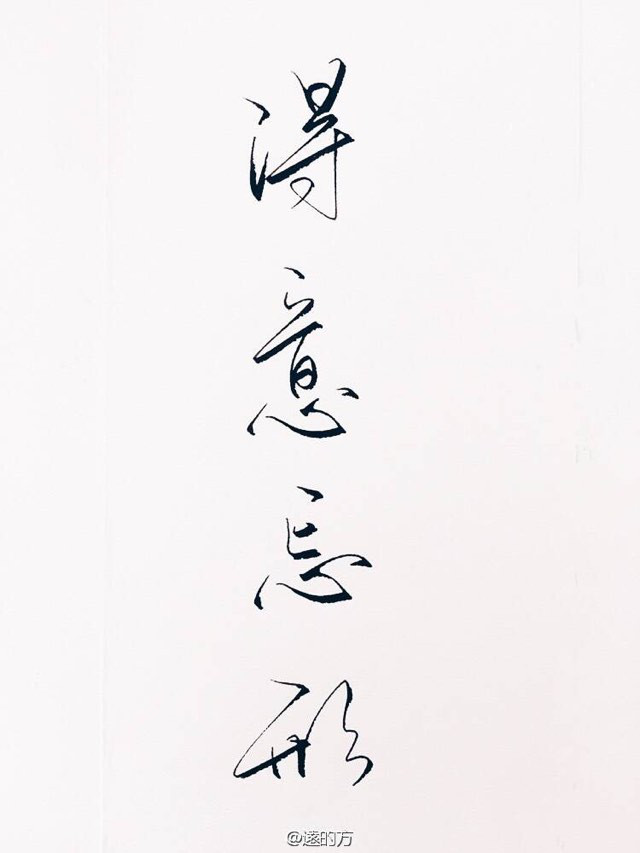 得意忘形
@遠的方